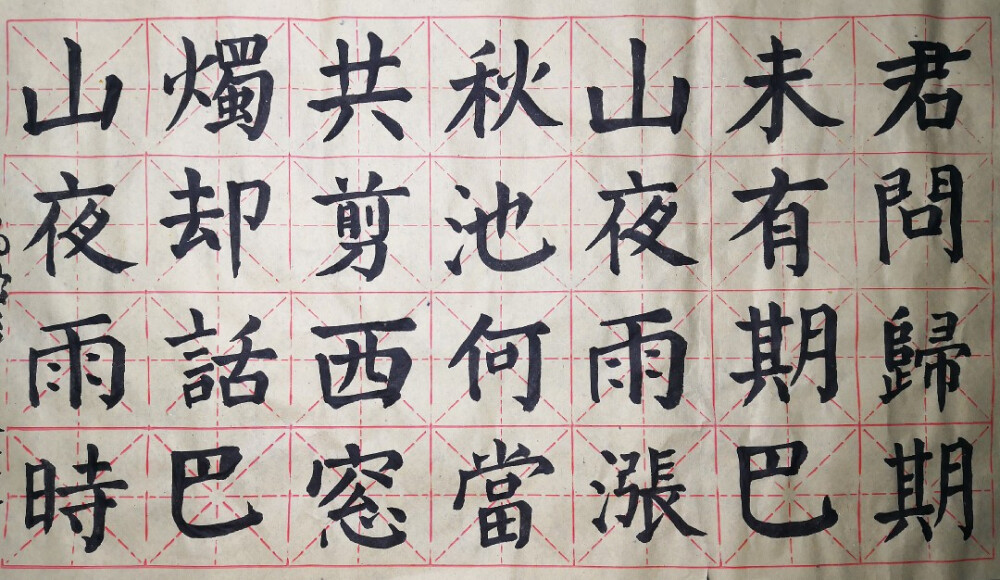 君問歸期
未有期巴
山夜雨漲
秋池何當
共剪西窓
燭却話巴
山夜雨時